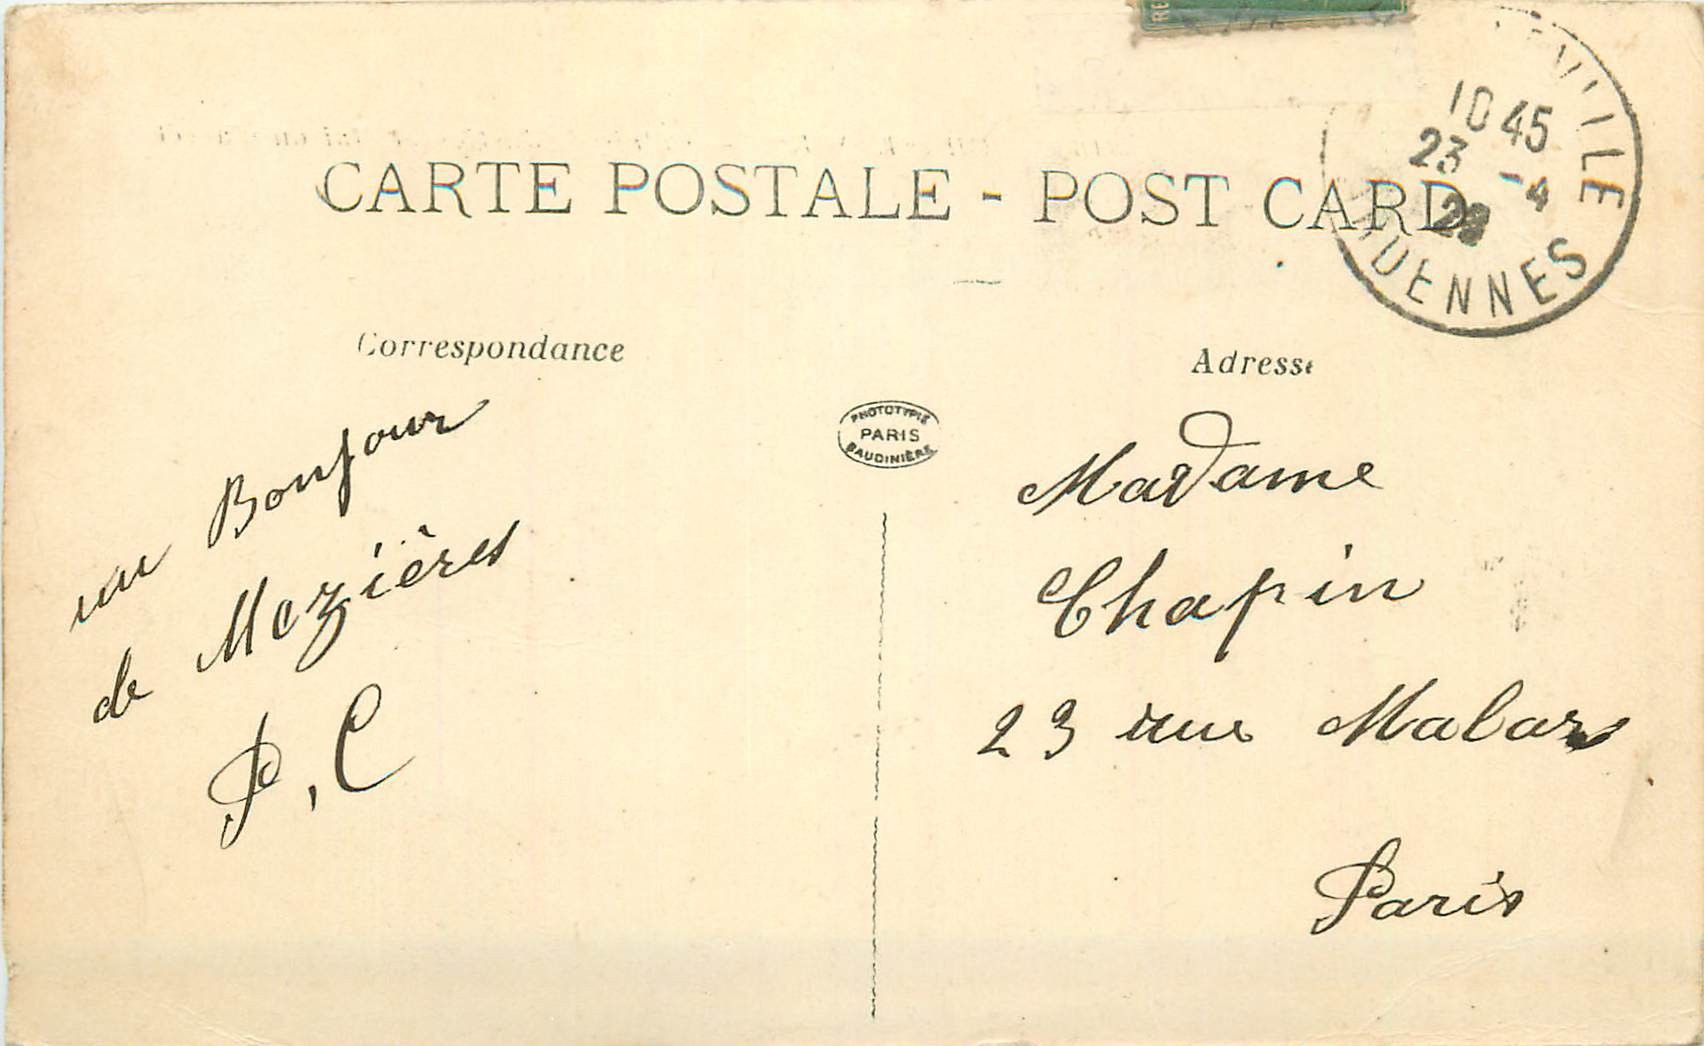 CARTE POSTALE - POST CARD
10 45
23 -4
ARDENNES
Correspondance
Adresse
PHOTOTYPIE
PARIS
BAUDINIÈRE
un Bonjour
de Mezières
P. C
Madame
Chapin
23 rue Malar
Paris